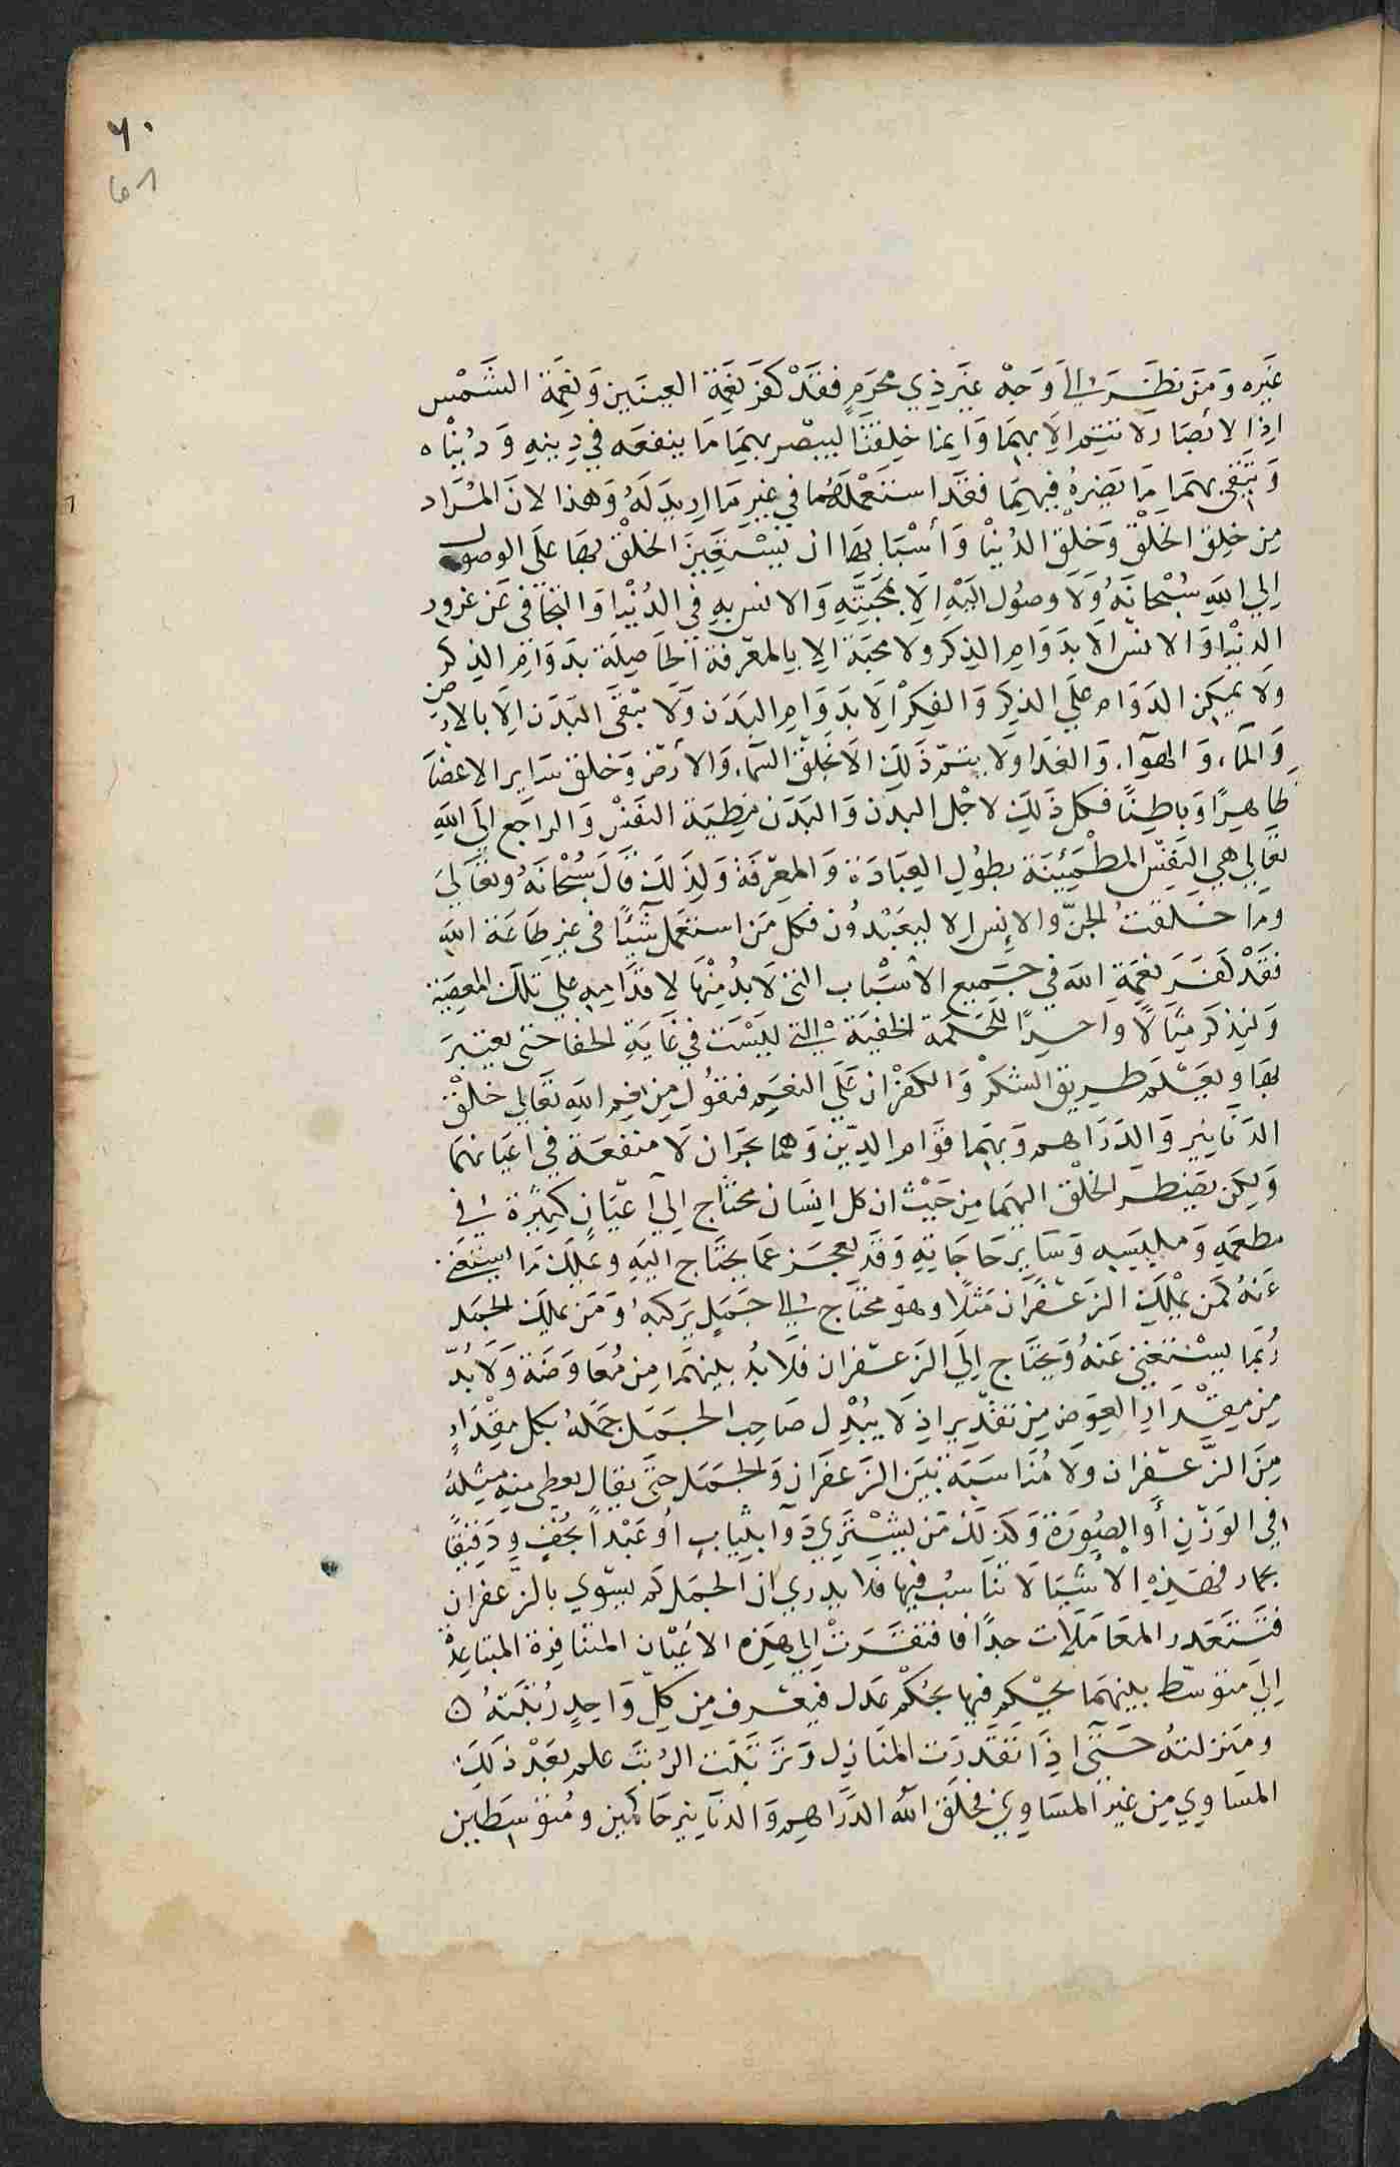 ٦٠
غيره وَمَن نظَرَ إلى وَجْه غير ذِي محرَمٍ فقدْ كفَر نِعْمَة العينَين وَنِعمَة الشَمْس
اذ الابْصَار لا تتِم الاَ بهمَا وَاِنما خلِقَتَا ليبْصر بهمَا مَا ينفعَه في دِينهِ وَدُنيْاه
وَيتقى بهمَا مَا يضرهُ فيهمَا فقدا ستعْملهُما في غير مَا اريدَ لَهُ وَهذا لان المُرَاد
مِن خلق الخلْق وَخلق الدُنيْا وَأسْبَابهَا ان يَسْتعَينَ الخلْق بهَا علَى الوصول
اِلي اللهِ سُبْحانَهُ وَلَا وصُول اليْهِ الاَ بمحَبتّهِ وَالانس بهِ في الدُنْيا وَالتجَافى عَن غرور
الدنْيا وَالانس الا بدَوَام الذِكر ولا محبَة الا بالمعْرفة الحَاصِلَة بدَوَام الذِكر
ولا يمكن الدَوَام علَي الذِكر وَالفِكرْ الاَ بدَوَام البَدن وَلَا يبْقَى البَدَن الاَ بالارْض
وَالمآء وَالهوآء وَالغذا وَلا يتمّ ذَلكَ الاَ بخلق السّمآء وَالأرْض وَخلق سَاير الاعضَا
ظاهِرًا وَباطِنًا فكل ذَلِك لاجْل البدَن وَالبَدَن مَطِيَة النفَسْ وَالراجع الَي اللهِ
تعَالي هي النفسْ المطْمَئِنَة بطوُلِ العِبَادَة وَالمعْرفَة وَلذلكَ قالَ سُبْحانَهُ وَتعَالَى
ومَا خَلقتُ الجنّ والاِنس الا ليعَبْدُون فكل مَن استعْمَل شَيْئًا في غير طَاعَة اللهِ
فقدْ كفَرَ نعْمَة اللهَ في جَميع الاسْبَاب التى لَا بدُ مِنْهَا لاقدَامهِ علَي تلكَ المعْصِيَة
وَلنِذكر مِثالًا واحِدًا للحَكمَة الخفيَة التي ليَسْت في غَايَةِ الخفا حَتى يعْتبرَ
بهَا وَيعْلَم طريق الشكرْ وَالكفْرَان علَي النعَم فنقوُل مِن نعم اللهِ تعَالي خلْق
الدنَانِير وَالدَرَاهم وَبهمَا قوَام الدّين وَهمَا حجَران لا منفعَة في اعْيَانهمَا
وَلكن يضَطر الخلْق اليهمَا مِن حَيْث ان كل انِسَان محتَاج الي اعْيَانٍ كثيرَة في
مطعَمهِ وَملبسَه وَسَاير حَاجَاتِهِ وَقدْ يعجز عَما يحتَاج اليهِ وَيملِك مَا يسْتغني
عَنهُ كمَن يمْلِك الزَعْفَران مَثلاً وهوَ محتَاج إلى جمَل يرَكبهُ وَمَن يملك الجمَل
رُبمَا يسْتغني عَنهُ وَيحتَاج الَي الزَعْفران فلَا بدُ بينهمَا مِن مُعَاوَضَة وَلَا بدُّ
مِن مِقدَار العِوَض مِن تقدِير اذ لا يبُذِل صَاحب الجمَل جمَلهُ بكل مِقدَارٍ
مِنَ الزَّعْفران وَلَا مُنَاسَبَة بَيْن الزَعفَران وَالجمَل حتَى يقَال يعطى منهِ مِثلهُ
في الوَزْنِ أو الصُورَة وَكذَلكَ مَن يشْتَري دَارًا بثيابٍ أو عَبْدًا بخُفٍ وَدَقيقًا
بحمار فهذِهِ الأشيَا لَا تناَسُب فيهَا فلَا يدري انَ الجمَل كم يسوّي بالزّعفَران
فتَتَعَذر المعَامَلَات جدًا فافتقَرَتْ اِلي هذِه الاعيْان المتنَافِرة المتباعِدة
اِلَى متوَسّط بينهمَا يحْكم فيها بحُكْم عَدل فيعْرف مِن كلّ وَاحِدٍ رُتبَتهُ
ومَنزلتهُ حَتّى اِذَا تقدرَت المنَازِل وَترَتّبَت الرُتَب علم بعَدْ ذَلكَ
المسَاوي مِن غير المسَاوِي فخلَقَ اللهُ الدرَاهِم وَالدنَانير حَاكمين ومُتوَسّطَين